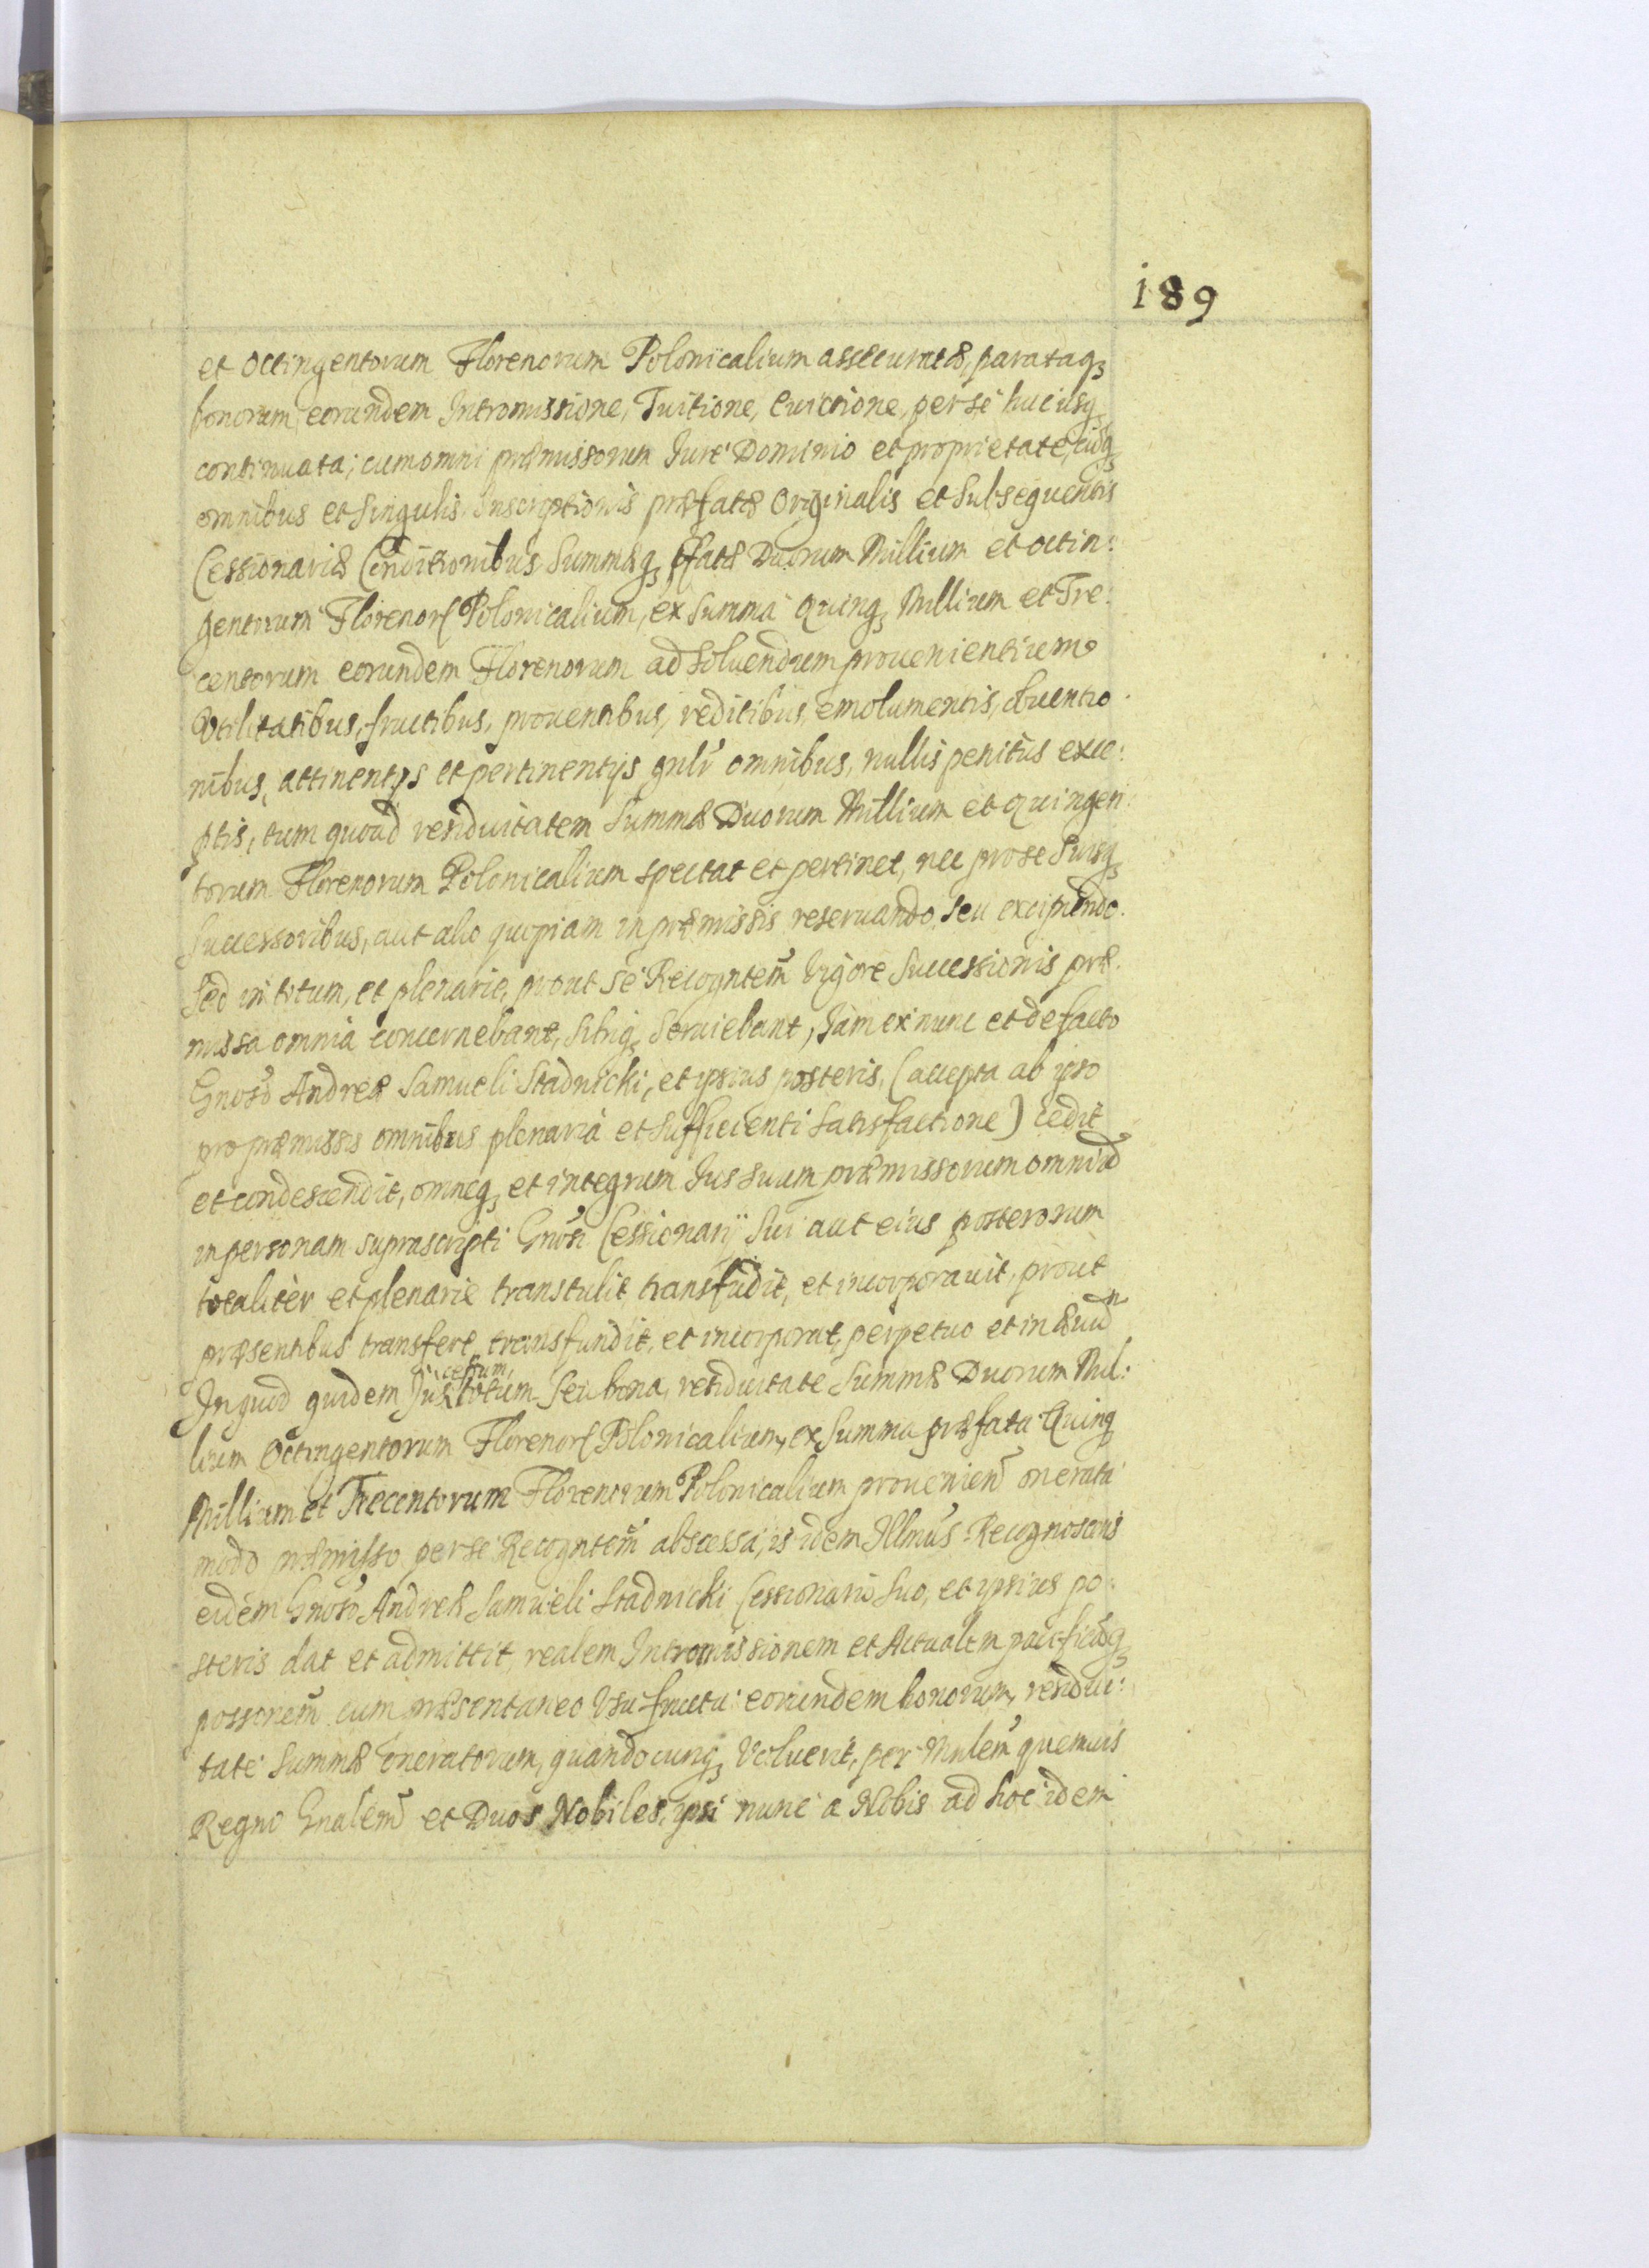 189
et Octingentorum Florenorum Polonicalium assecuratæ, parataq₃
bonorum eorundem Intromissione, Tuitione, Euictione, per se hucusq₃
continuata; cum omni præmissorum Iure Dominio et proprietate, cūq₃
omnibus et singulis Inscriptionis præfatæ Originalis et Subsequentis
Cessionariæ Conditionibus Summæq₃ pfatæ Duorum Millium et Octin:
gentorum Florenor Polonicalium, ex Summa Quinq₃ Millium et Tre:
centorum eorundem Florenorum ad soluendum prouenientium
Vtilitatibus, fructibus, prouentibus, reditibus, emolumentis, obuentio
nibus, attinentijs et pertinentijs gnlr̃ omnibus, nullis penitus exce:
ptis, tum quoad residuitatem Summæ Duorum Millium et Quingen
torum Florenorum Polonicalium spectat et pertinet, nec pro se Suisq₃
Successoribus, aut alio quopiam in præmissis reseruando seu excipiendo.
Sed in totum, et plenarie, prout se Recogntem̃ Vigore Successionis præ
missa omnia concernebant, Sibiq₃ Seruiebant, Iam ex nunc et de facto
Gnoso Andreæ Samueli Stadnicki, et ipsius posteris, (accepta ab ipso
pro præmissis omnibus plenaria et sufficienti Satisfactione) cedit
et condescendit, omneq₃ et integrum Ius suum præmissorum omniũ
in personam suprascripti Gnosi Cessionarij Sui aut eius posterorum
totaliter et plenarie transtulit, transfudit, et incorporauit, prout
præsentibus transfert, transfundit, et incorporat, perpetuo et in æuũ
In quod quidem Ius cessum, totum seu bona, residuitate Summæ Duorum Mil:
lium Octingentorum Florenor Polonicalium, ex Summa præfata Quinq
Millium et Trecentorum Florenorum Polonicalium prouenien̄ onerata
modo præmisso per se Recogntem̃ abscessa, is idem Illmus Recognoscens
eidem Gnoso Andreæ Samueli Stadnicki Cessionario Suo, et ipsius po:
steris dat et admittit, realem Intromissionem et Actualem pacificāq₃
possnem̃ cum præsentaneo Vsufructu eorundem bonorum, residui:
tate Summæ oneratorum, quandocunq₃ Voluerit, per Mnlem̃ quemuis
Regni Gnalem̃ et Duos Nobiles, ipsi nunc a Nobis ad hoc idem